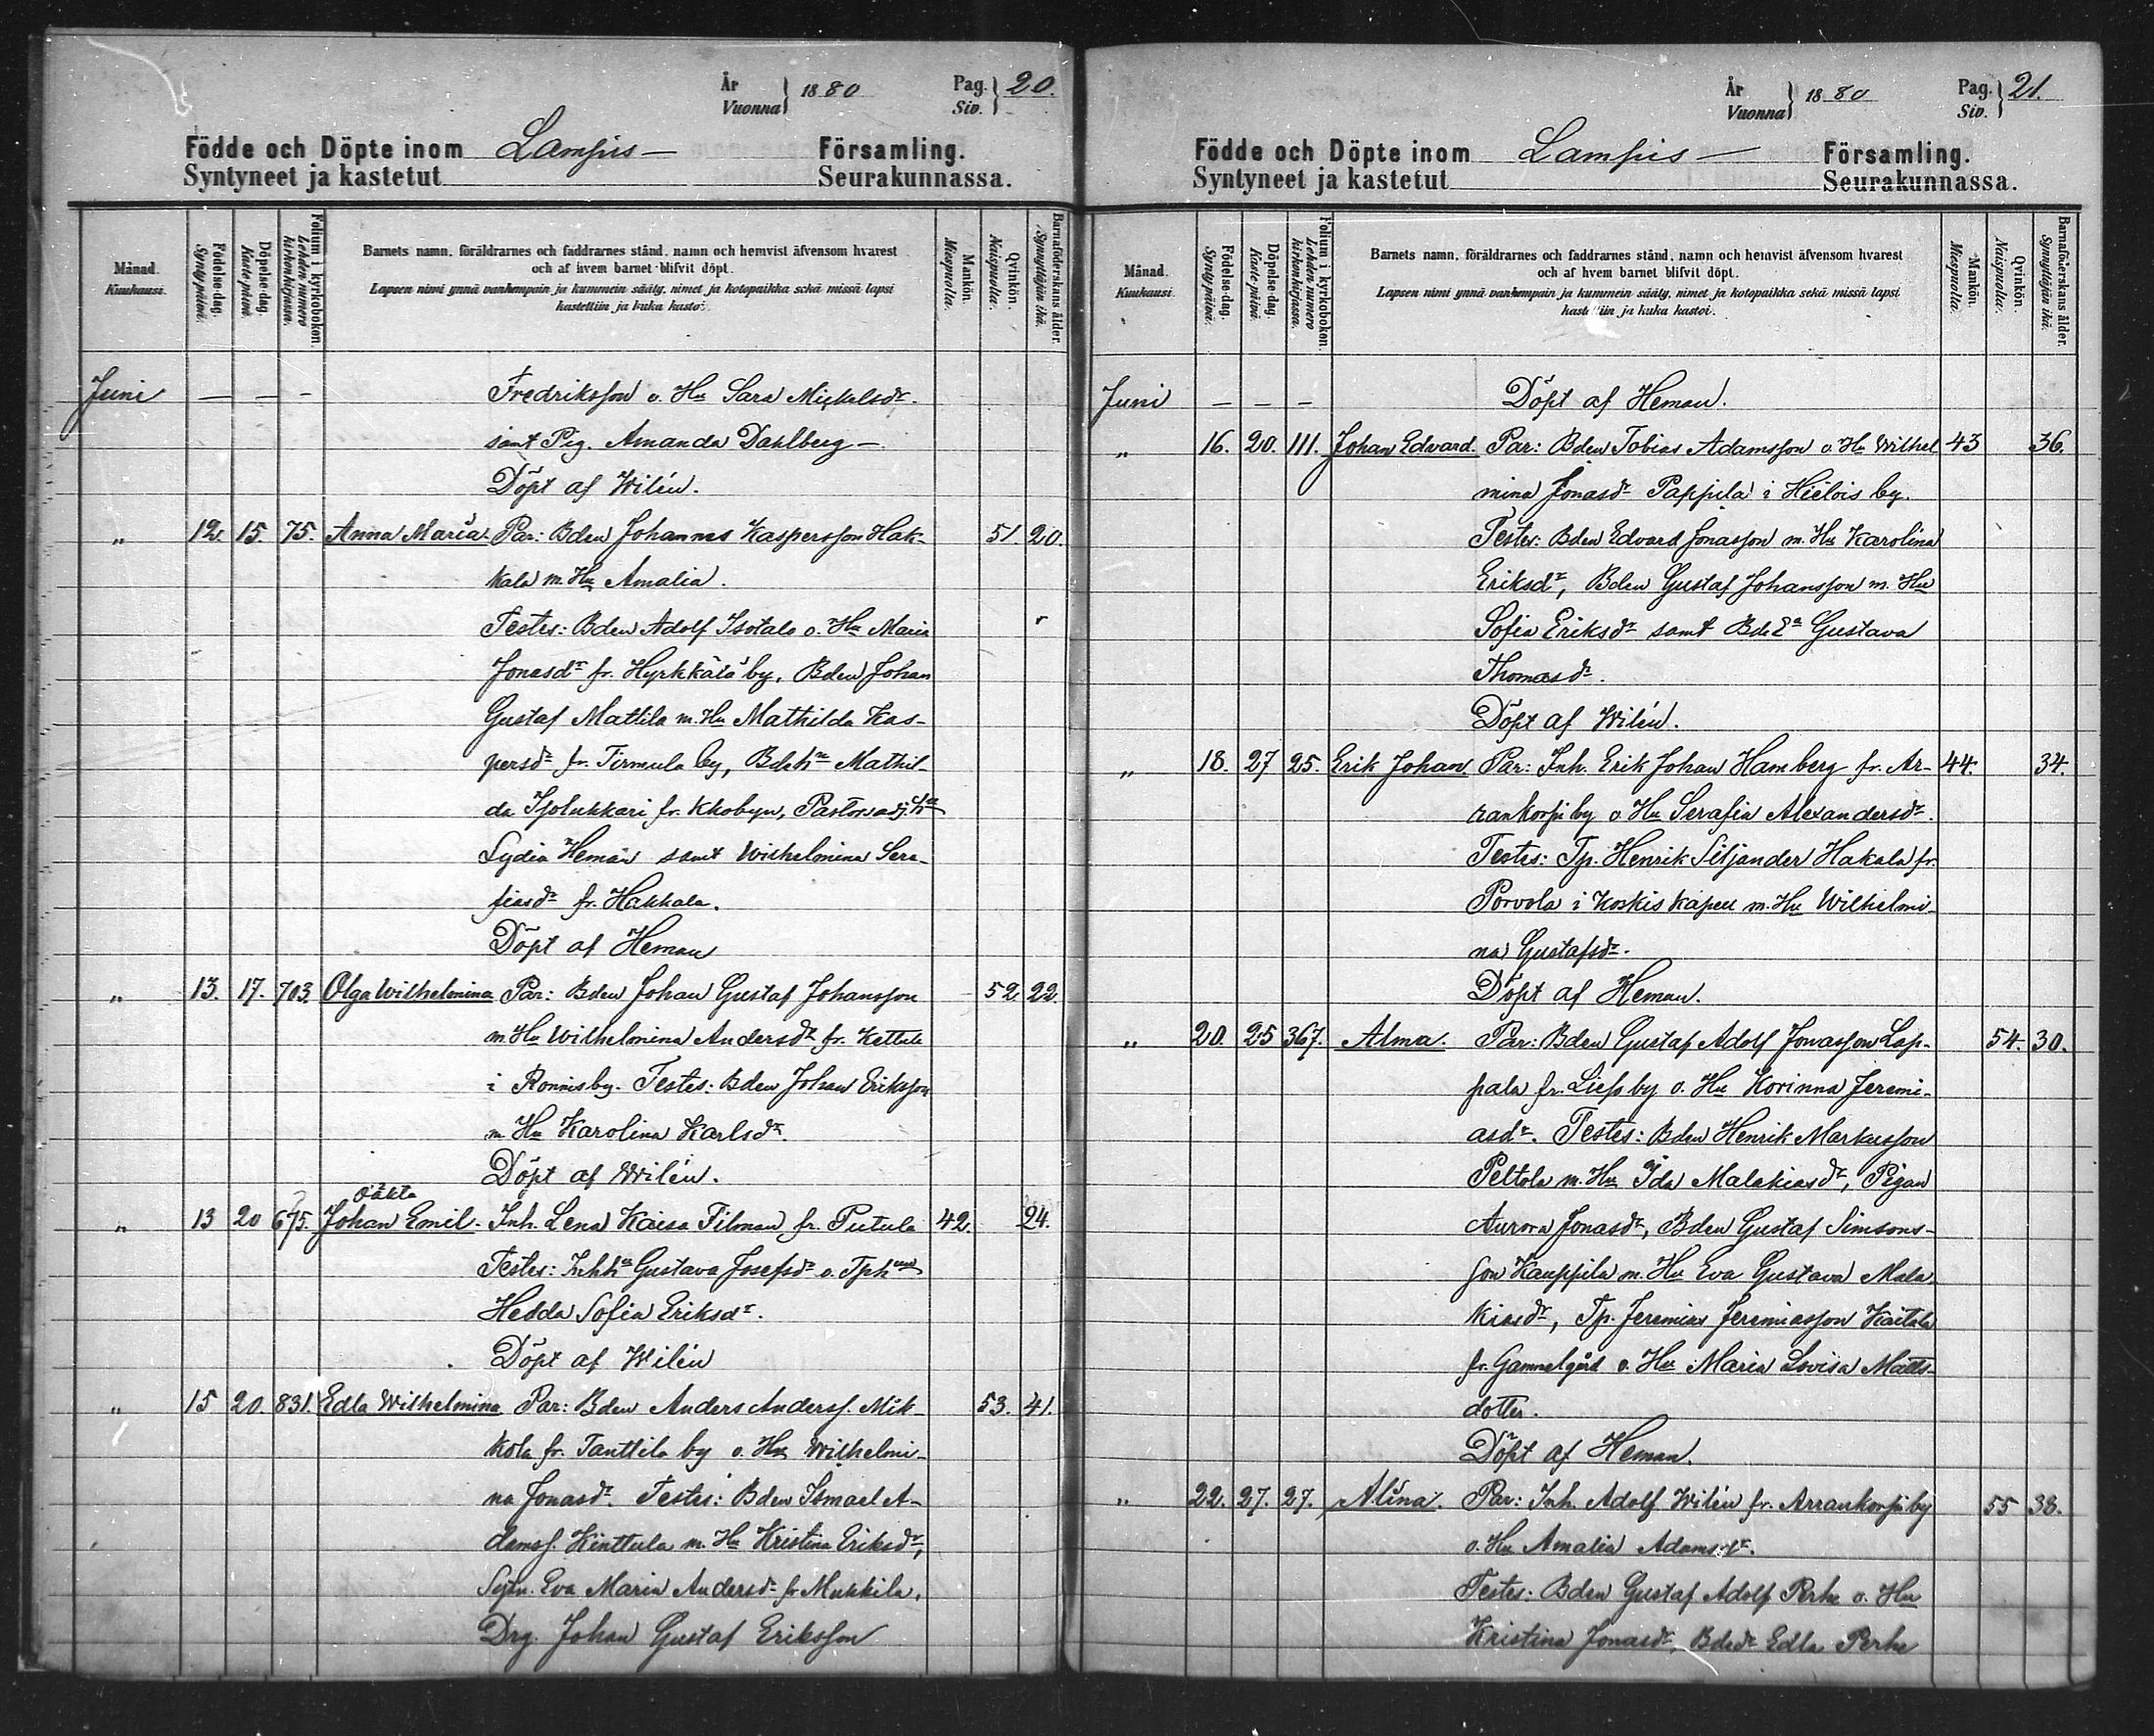 År
Vuonna } 1880
Pag.
Siv. } 20.
Födde och Döpte inom Lampis — Församling.
Syntyneet ja kastetut Seurakunnassa.
Månad.
Kuukausi.
Födelse-dag.
Syntypäivä.
Döpelse-dag.
Kaste-päivä.
Folium i kyrkoboken.
Lehden numero
kirkonkirjassa.
Barnets namn, föräldrarnes och faddrarnes stånd, namn och hemvist äfvensom hvarest
och af hvem barnet blifvit döpt.
Lapsen nimi ynnä vanhempain ja kummein sääty, nimet ja kotopaikka sekä missä lapsi
kastettiin ja kuka kastoi.
Mankön.
Miespuolta.
Qvinkön.
Naispuolta.
Barnaföderskans ålder.
Synnyttäjän ikä.
Juni — — — Fredriksson o. Hu Sara Mickelsdr.
samt Pig. Amanda Dahlberg —
Döpt af Wilén.
„ 12. 15. 75. Anna Maria. Par: Bden Johannes Kaspersson Hak- 51. 20.
kala m. Hu Amalia.
Testes: Bden Adolf Isotalo o. Hu Maria
Jonasdr fr. Hyrkkälä by, Bden Johan
Gustaf Mattila m. Hu Mathilda Kas-
persdr fr. Tirmula by, Bdeh Mathil-
da fr. Kkobyn, Pastorsadj.
Lydia Heman samt Wilhelmina Sera-
fiasdr fr. Hakkala.
Döpt af Heman
„ 13. 17. 703. Olga Wilhelmina Par: Bden Johan Gustaf Johansson 52 22.
m. Hu Wilhelmina Andersdr fr. Kettula
i Ronnis by. Testes: Bden Johan Eriksson
m. Hu Karolina Karlsdr.
Döpt af Wilén.
oäkta
„ 13 20 675. Johan Emil. Inh. Lena Kaisa Filman fr. Putula 42. 24.
Testes: Inhh Gustava Josefsdr o. Tph
Hedda Sofia Eriksdr.
Döpt af Wilén
„ 15 20. 831. Edla Wilhelmina Par: Bden Anders Anderss. Mik- 53. 41.
kola fr. Tanttila by o. Hu Wilhelmi-
na Jonasdr. Testes: Bden Ismael A-
damss. Kinttula m. Hu Kristina Eriksdr,
Sytn. Eva Maria Andersdr fr. Mukkila.
Drg. Johan Gustaf Eriksson
År
Vuonna } 1880
Pag.
Siv. } 21.
Födde och Döpte inom Lampis — Församling.
Syntyneet ja kastetut Seurakunnassa.
Månad.
Kuukausi.
Födelse-dag.
Syntypäivä.
Döpelse-dag.
Kaste-päivä.
Folium i kyrkoboken.
Lehden numero
kirkonkirjassa.
Barnets namn, föräldrarnes och faddrarnes stånd, namn och hemvist äfvensom hvarest
och af hvem barnet blifvit döpt.
Lapsen nimi ynnä vanhempain ja kummein sääty, nimet ja kotopaikka sekä missä lapsi
kastettiin ja kuka kastoi.
Mankön.
Miespuolta.
Qvinkön.
Naispuolta.
Barnaföderskans ålder.
Synnyttäjän ikä.
Juni — — — Döpt af Heman.
„ 16. 20. 111. Johan Edvard. Par: Bden Tobias Adamsson o. Hu Wilhel 43 36.
mina Jonasdr Pappila i Hietois by.
Testes: Bden Edvard Jonasson m. Hu Karolina
Eriksdr, Bden Gustaf Johansson m. Hu
Sofia Eriksdr samt Gustava
Thomasdr.
Döpt af Wilén.
„ 18. 27 25. Erik Johan. Par: Inh. Erik Johan Hamberg fr. Ar- 44. 34.
rankorpi by o. Hu Serafia Alexandersdr.
Testes: Tp. Henrik Siljander Hakala fr.
Porvola i Koskis kapell m. Hu Wilhelmi-
na Gustafsdr.
Döpt af Heman.
„ 20. 25 367. Alma. Par: Bden Gustaf Adolf Jonasson Lap- 54. 30.
pala fr. Lieso by o. Hu Korinna Jeremi-
asdr. Testes: Bden Henrik Markusson
Peltola m. Hu Ida Malakiasdr, Pigan
Aurora Jonasdr, Bden Gustaf Simsons-
son Kauppila m. Hu Eva Gustava Mala-
kiasdr, Tp. Jeremias Jeremiasson Kaitala
fr. Gammelgård o. Hu Maria Lovisa Matts-
dotter.
Döpt af Heman.
„ 22. 27. 27. Alina. Par: Inh. Adolf Wilén fr. Arrankorpi by 55 38.
o. Hu Amalia Adamsdr.
Testes: Bden Gustaf Adolf Perhe o. Hu
Kristina Jonasdr, Bdedr Edla Perhe